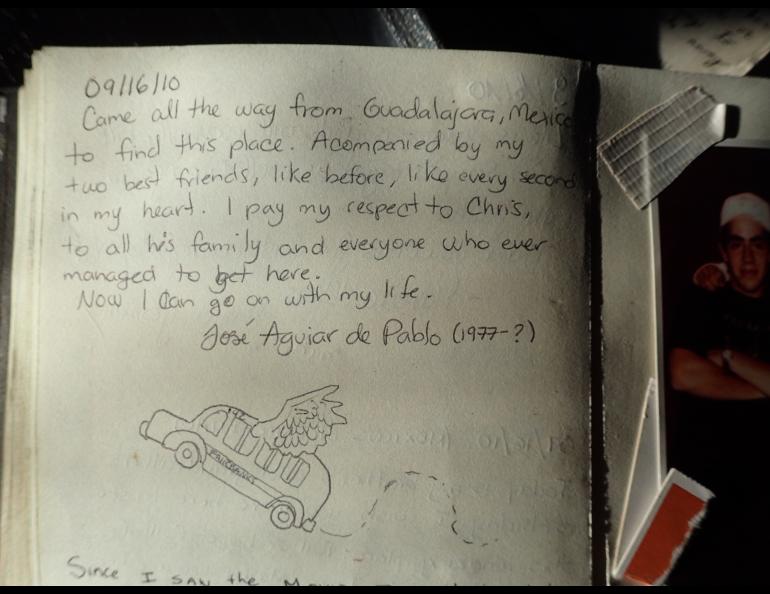 09/16/10
Came all the way from Guadalajara, Mexico
to find this place. Acompanied by my
two best friends, like before, like every second
in my heart. I pay my respect to Chris,
to all his family and everyone who ever
managed to get here.
Now I Can go on with my life.
José Aguiar de Pablo (1977-?)
142
FAIRBANKS
Since I saw the